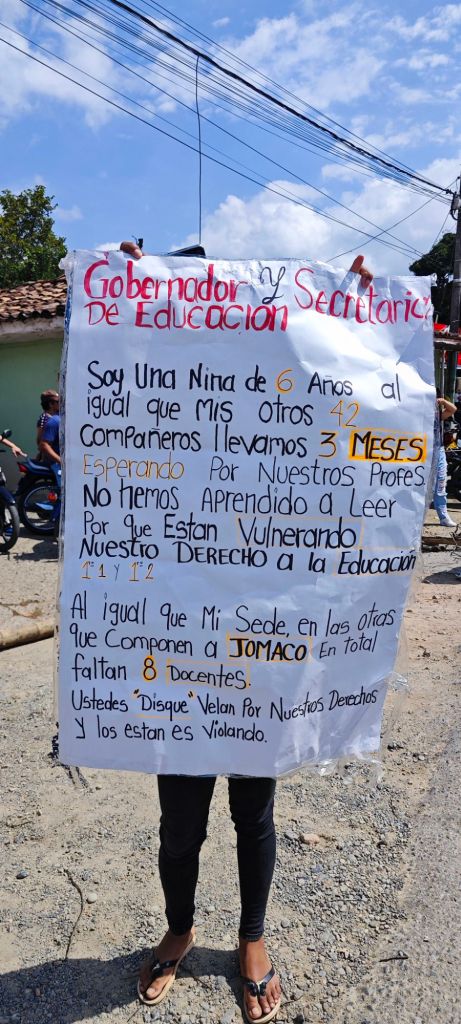 Gobernador y Secretaria
De Educación
Soy Una Niña de 6 Años al
igual que Mis otros 42
Compañeros llevamos 3 MESES
Esperando Por Nuestros Profes.
No hemos Aprendido a Leer
Por que Estan Vulnerando
Nuestro DERECHO a la Educación
1°1 y 1°2
Al igual que Mi Sede, en las otras
que Componen a JOMACO En total
faltan 8 Docentes.
Ustedes "Disque" Velan Por Nuestros Derechos
y los estan es Violando.